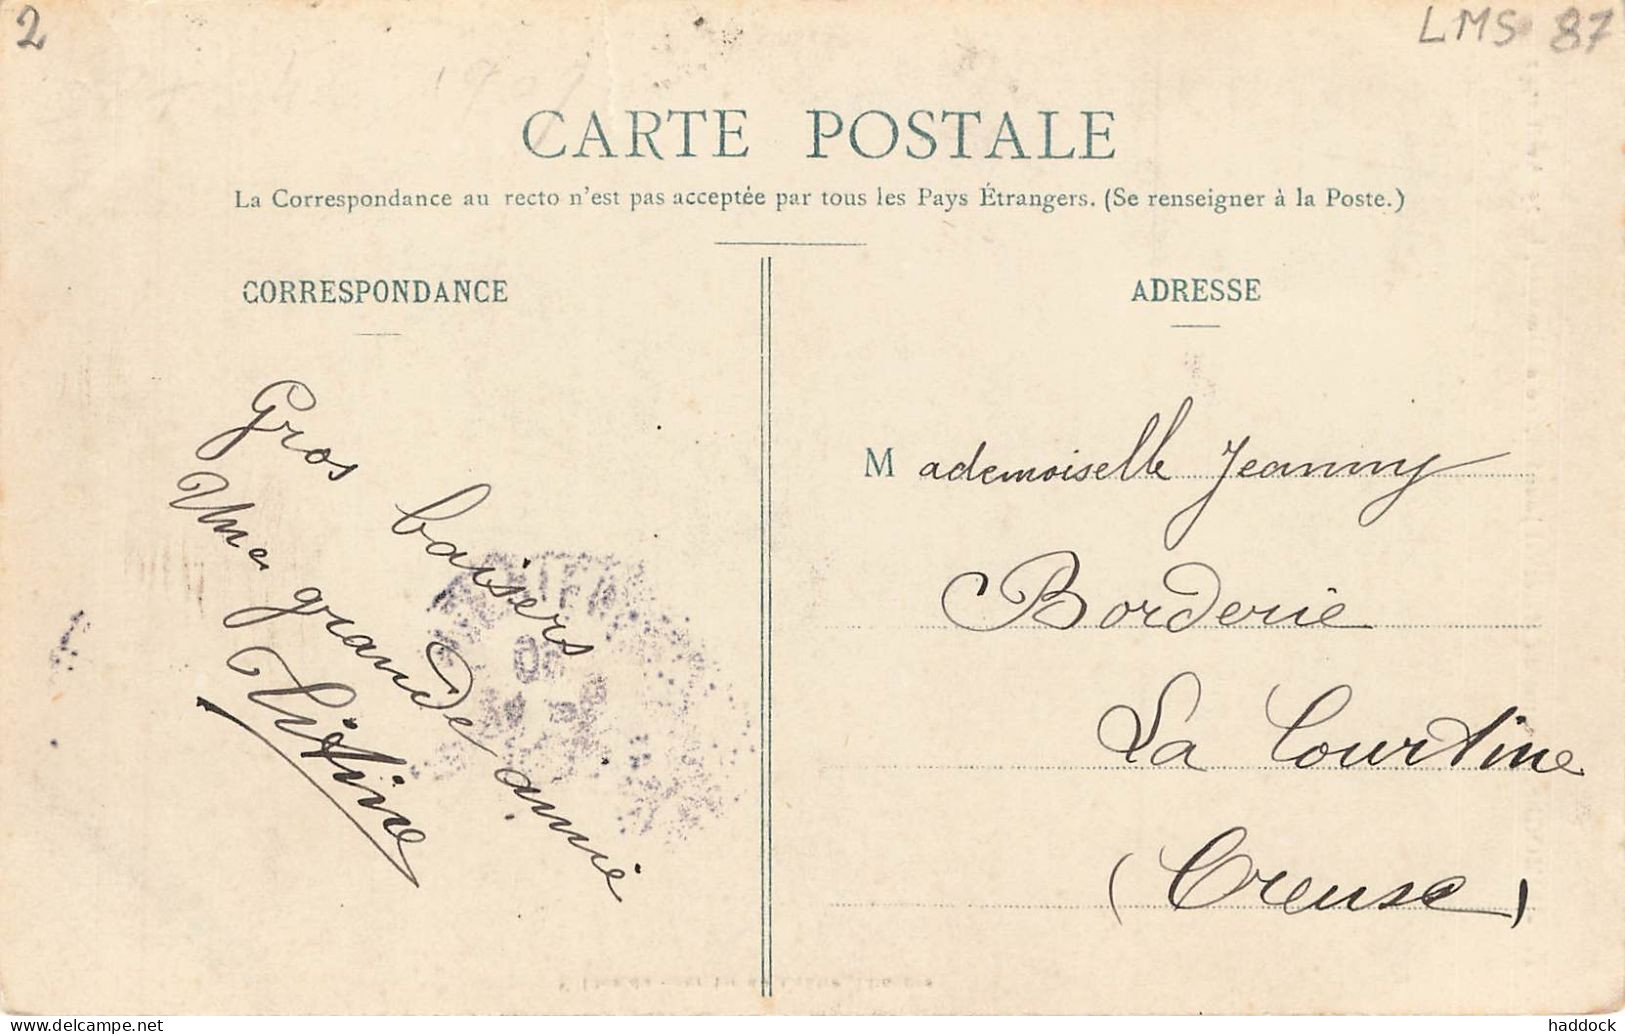 2
LMS 87
CARTE POSTALE
La Correspondance au recto n'est pas acceptée par tous les Pays Étrangers. (Se renseigner à la Poste.)
CORRESPONDANCE
Gros baisers
Une grande amie
Titine
ADRESSE
Mademoiselle Jeanny
Borderie
La Courtine
(Creuse)
delcampe.net
haddock